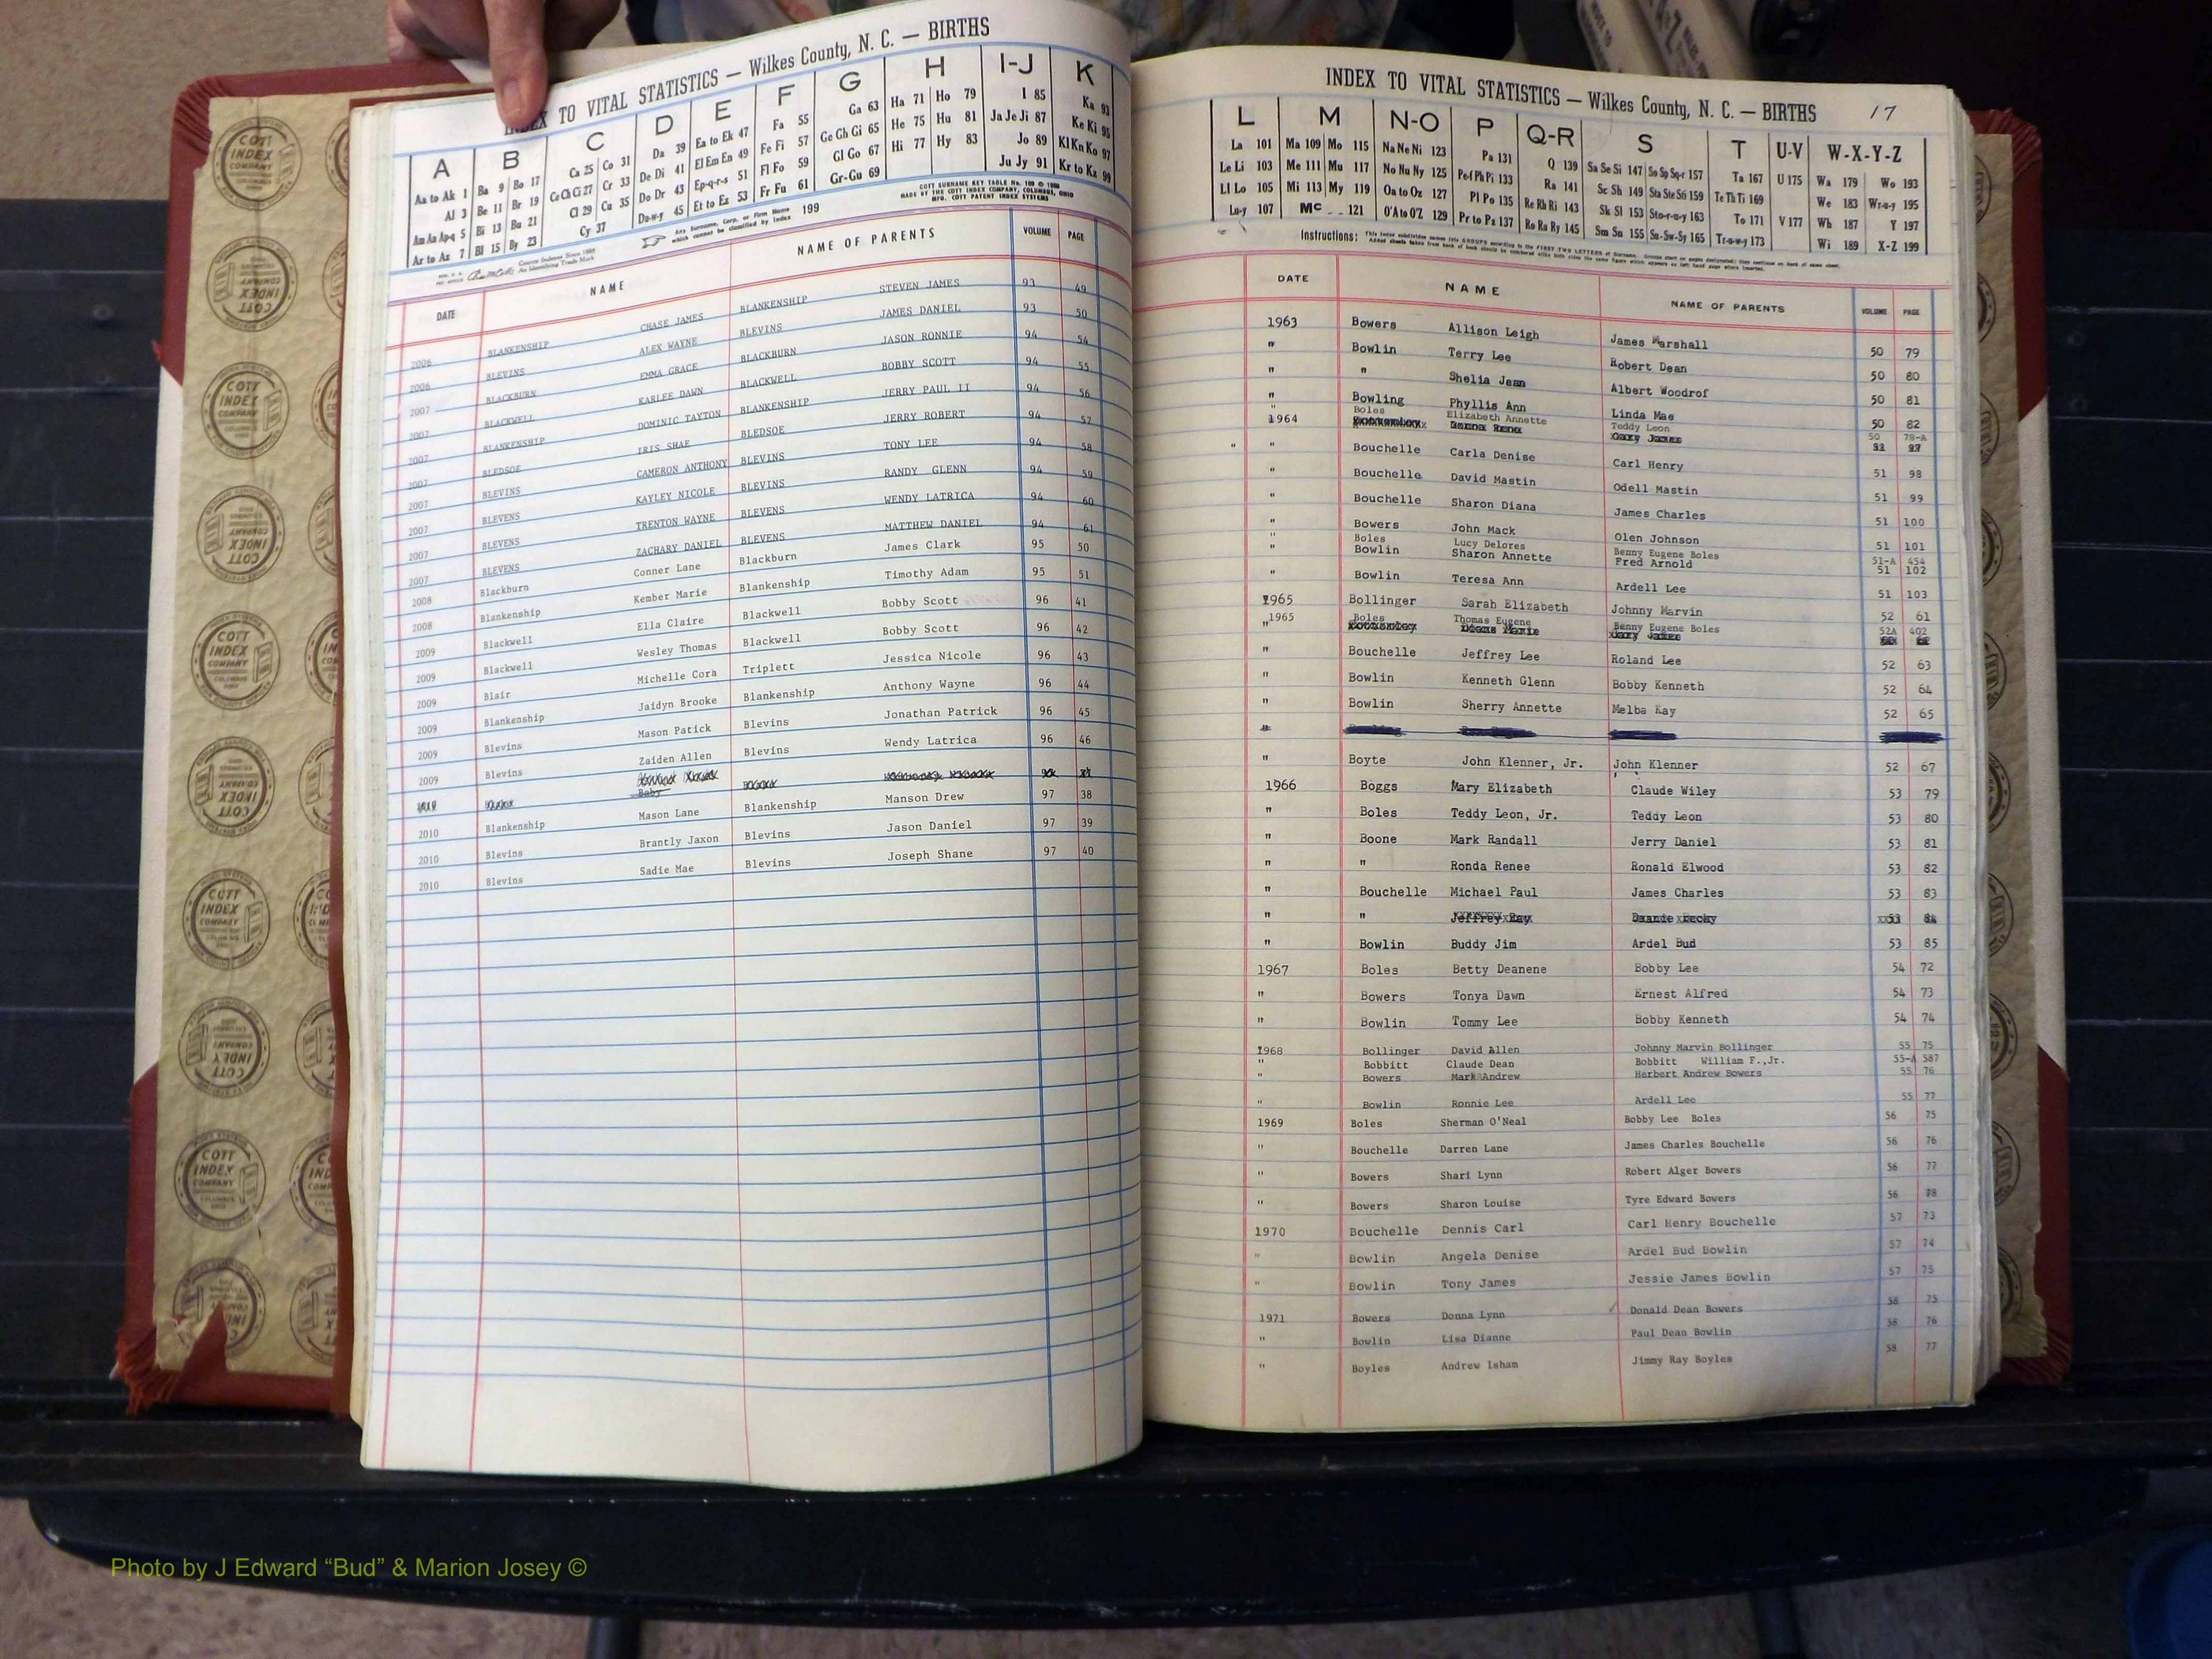 INDEX TO VITAL STATISTICS — Wilkes County, N. C. — BIRTHS
A B C D E F G H I-J K
Aa to Ak 1 Ba 9 Bo 17 Ca 25 Co 31 Da 39 Ea to Ek 47 Fa 55 Ga 63 Ha 71 Ho 79 I 85 Ka 93
Al 3 Be 11 Br 19 Ce Ch Ci 27 Cr 33 De Di 41 El Em En 49 Fe Fi 57 Ge Gh Gi 65 He 75 Hu 81 Ja Je Ji 87 Ke Ki 95
Am An Ap-q 5 Bi 13 Bu 21 Cl 29 Cu 35 Do Dr 43 Ep-q-r-s 51 Fl Fo 59 Gl Go 67 Hi 77 Hy 83 Jo 89 Kl Kn Ko 97
Ar to Az 7 Bl 15 By 23 Cy 37 Du-w-y 45 Et to Ez 53 Fr Fu 61 Gr-Gu 69 Ju Jy 91 Kr to Kz 99
Any Surname, Corp. or Firm Name which cannot be classified by Index 199
COTT SURNAME KEY TABLE No.
MADE BY THE COTT INDEX COMPANY, COLUMBUS, OHIO
MFG. COTT PATENT INDEX SYSTEMS
County Indexes Since 1888
An Identifying Trade Mark
DATE NAME NAME OF PARENTS VOLUME PAGE
2006 BLANKENSHIP CHASE JAMES BLANKENSHIP STEVEN JAMES 93 49
2006 BLEVINS ALEX WAYNE BLEVINS JAMES DANIEL 93 50
2007 BLACKBURN EMMA GRACE BLACKBURN JASON RONNIE 94 54
2007 BLACKWELL KARLEE DAWN BLACKWELL BOBBY SCOTT 94 55
2007 BLANKENSHIP DOMINIC TAYTON BLANKENSHIP JERRY PAUL II 94 56
2007 BLEDSOE IRIS SHAE BLEDSOE JERRY ROBERT 94 57
2007 BLEVINS CAMERON ANTHONY BLEVINS TONY LEE 94 58
2007 BLEVENS KAYLEY NICOLE BLEVINS RANDY GLENN 94 59
2007 BLEVENS TRENTON WAYNE BLEVENS WENDY LATRICA 94 60
2007 BLEVENS ZACHARY DANIEL BLEVENS MATTHEW DANIEL 94 61
2008 Blackburn Conner Lane Blackburn James Clark 95 50
2008 Blankenship Kember Marie Blankenship Timothy Adam 95 51
2009 Blackwell Ella Claire Blackwell Bobby Scott 96 41
2009 Blackwell Wesley Thomas Blackwell Bobby Scott 96 42
2009 Blair Michelle Cora Triplett Jessica Nicole 96 43
2009 Blankenship Jaidyn Brooke Blankenship Anthony Wayne 96 44
2009 Blevins Mason Patick Blevins Jonathan Patrick 96 45
2009 Blevins Zaiden Allen Blevins Wendy Latrica 96 46
Baby
2010 Blankenship Mason Lane Blankenship Manson Drew 97 38
2010 Blevins Brantly Jaxon Blevins Jason Daniel 97 39
2010 Blevins Sadie Mae Blevins Joseph Shane 97 40
INDEX TO VITAL STATISTICS — Wilkes County, N. C. — BIRTHS 17
L M N-O P Q-R S T U-V W-X-Y-Z
La 101 Ma 109 Mo 115 Na Ne Ni 123 Pa 131 Q 139 Sa Se Si 147 So Sp Sq-r 157 Ta 167 U 175 Wa 179 Wo 193
Le Li 103 Me 111 Mu 117 No Nu Ny 125 Pe-f Ph Pi 133 Ra 141 Sc Sh 149 Sta Ste Sti 159 Te Th Ti 169 We 183 Wr-u-y 195
Ll Lo 105 Mi 113 My 119 Oa to Oz 127 Pl Po 135 Re Rh Ri 143 Sk Sl 153 Sto-r-u-y 163 To 171 V 177 Wh 187 Y 197
Lu-y 107 Mc 121 O'A to O'Z 129 Pr to Pz 137 Ro Ru Ry 145 Sm Sn 155 Su-Sw-Sy 165 Tr-u-w-y 173 Wi 189 X-Z 199
Instructions: This index subdivides names into GROUPS according to the FIRST TWO LETTERS of Surname.
DATE NAME NAME OF PARENTS VOLUME PAGE
1963 Bowers Allison Leigh James Marshall 50 79
" Bowlin Terry Lee Robert Dean 50 80
" " Shelia Jean Albert Woodrof 50 81
" Bowling Phyllis Ann Linda Mae 50 82
" Boles Elizabeth Annette Teddy Leon 50 78-A
1964 Gary James
" " Bouchelle Carla Denise Carl Henry 51 98
" Bouchelle David Mastin Odell Mastin 51 99
" Bouchelle Sharon Diana James Charles 51 100
" Bowers John Mack Olen Johnson 51 101
" Boles Lucy Delores Benny Eugene Boles 51-A 454
" Bowlin Sharon Annette Fred Arnold 51 102
" Bowlin Teresa Ann Ardell Lee 51 103
1965 Bollinger Sarah Elizabeth Johnny Marvin 52 61
1965 Boles Thomas Eugene Benny Eugene Boles 52A 402
"
" Bouchelle Jeffrey Lee Roland Lee 52 63
" Bowlin Kenneth Glenn Bobby Kenneth 52 64
" Bowlin Sherry Annette Melba Kay 52 65
"
" Boyte John Klenner, Jr. John Klenner 52 67
1966 Boggs Mary Elizabeth Claude Wiley 53 79
" Boles Teddy Leon, Jr. Teddy Leon 53 80
" Boone Mark Randall Jerry Daniel 53 81
" " Ronda Renee Ronald Elwood 53 82
" Bouchelle Michael Paul James Charles 53 83
" " Jeffrey Ray 53 84
" Bowlin Buddy Jim Ardel Bud 53 85
1967 Boles Betty Deanene Bobby Lee 54 72
" Bowers Tonya Dawn Ernest Alfred 54 73
" Bowlin Tommy Lee Bobby Kenneth 54 74
1968 Bollinger David Allen Johnny Marvin Bollinger 55 75
" Bobbitt Claude Dean Bobbitt William F.,Jr. 55-A 587
" Bowers Mark Andrew Herbert Andrew Bowers 55 76
" Bowlin Ronnie Lee Ardell Lee 55 77
1969 Boles Sherman O'Neal Bobby Lee Boles 56 75
" Bouchelle Darren Lane James Charles Bouchelle 56 76
" Bowers Shari Lynn Robert Alger Bowers 56 77
" Bowers Sharon Louise Tyre Edward Bowers 56 78
1970 Bouchelle Dennis Carl Carl Henry Bouchelle 57 73
" Bowlin Angela Denise Ardel Bud Bowlin 57 74
" Bowlin Tony James Jessie James Bowlin 57 75
1971 Bowers Donna Lynn Donald Dean Bowers 58 75
" Bowlin Lisa Dianne Paul Dean Bowlin 58 76
" Boyles Andrew Isham Jimmy Ray Boyles 58 77
COTT INDEX COMPANY
Photo by J Edward “Bud” & Marion Josey ©